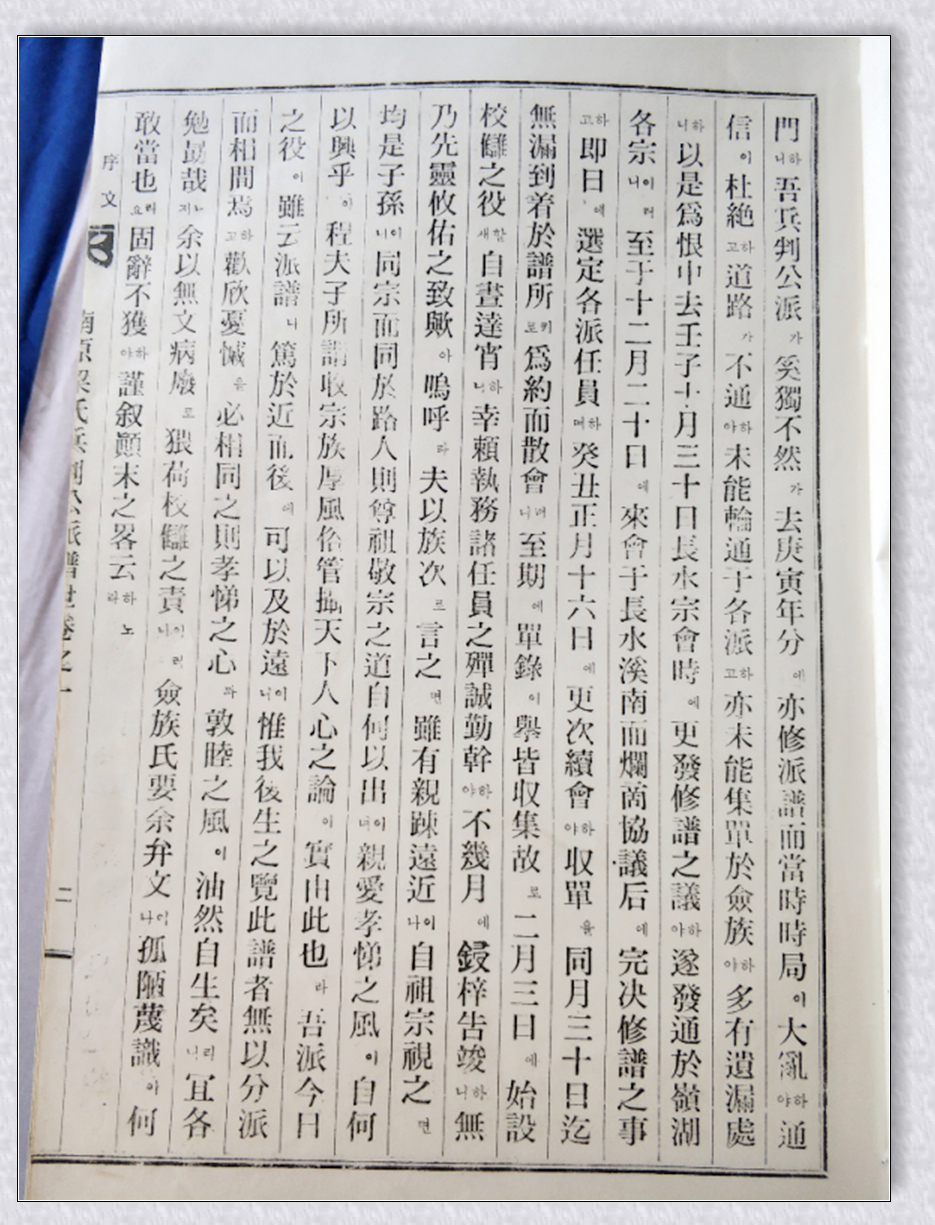 門하니吾兵判公派가奚獨不然가去庚寅年分에亦修派譜而當時時局이大亂하야通
信이杜絶하고道路가不通하야未能輪通于各派하고亦未能集單於僉族하야多有遺漏處
하니以是爲恨中去壬子十月三十日長水宗會時에更發修譜之議하야遂發通於嶺湖
各宗이니러至于十二月二十日에來會于長水溪南而爛啇協議后에完决修譜之事
하고即日에選定各派任員하며癸丑正月十六日에更次續會하야収單을同月三十日迄
無漏到着於譜所키로爲約而散會러니至期에單錄이擧皆収集故로二月三日에始設
校讎之役할새自晝達宵하니幸賴執務諸任員之殫誠勤幹하야不幾月에鋟梓告竣하니無
乃先靈攸佑之致歟아嗚呼라夫以族次로言之면雖有親踈遠近이나自祖宗視之면
均是子孫이니同宗而同於路人則尊祖敬宗之道自何以出이며親愛孝悌之風이自何
以興乎아程夫子所謂収宗族厚風俗管攝天下人心之論이實由此也라吾派今日
之役이雖云派譜나篤於近而後에可以及於遠이니惟我後生之覽此譜者無以分派
而相間焉하고歡欣憂慽을必相同之則孝悌之心과敦睦之風이油然自生矣리니宜各
勉勗哉ㄴ저余以無文病廢로猥荷校讎之責이러니僉族氏要余弁文이나孤陋蔑識이何
敢當也리요固辭不獲하야謹叙顚末之畧云하노라
序文
南原梁氏兵判公派譜世卷之一
二